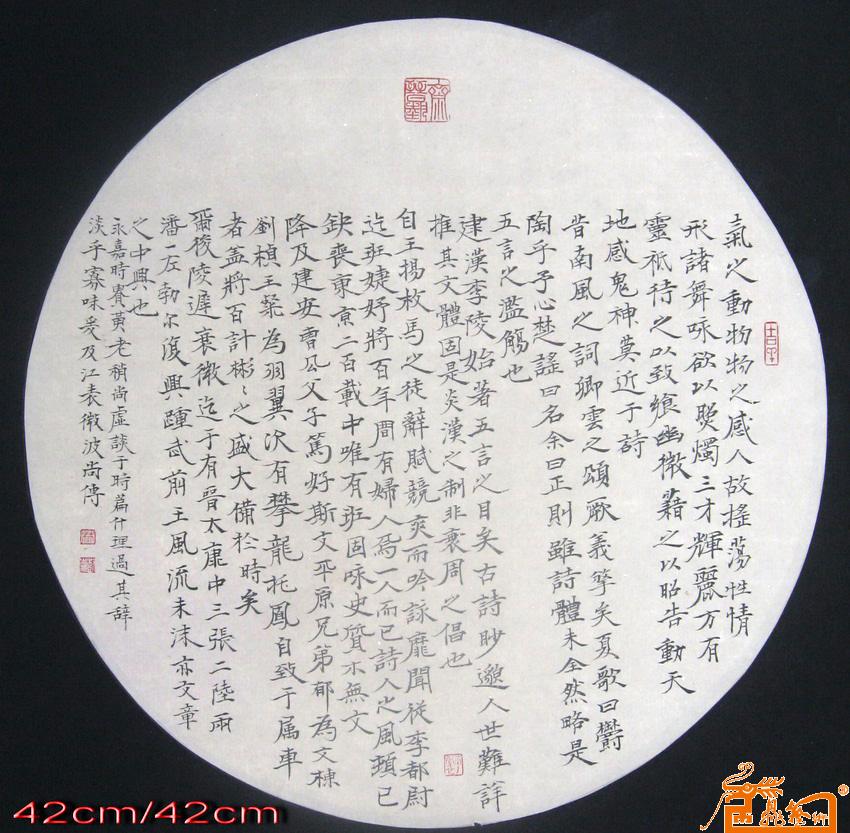 氣之動物物之感人故搖蕩性情
形諸舞咏欲以照燭三才輝麗万有
靈祇待之以致飨幽微藉之以昭告動天
地感鬼神莫近于詩
昔南風之詞卿雲之頌厥義夐矣夏歌曰鬱
陶乎予心楚謡曰名余曰正則雖詩體未全然略是
五言之濫觴也
逮漢李陵始著五言之目矣古詩眇邈人世難詳
推其文體固是炎漢之制非衰周之倡也
自王揚枚馬之徒辭賦競爽而吟詠靡聞従李都尉
迄班婕妤將百年間有婦人焉一人而已詩人之風頓已
缺喪東京二百載中唯有班固咏史質木無文
降及建安曹公父子篤好斯文平原兄弟郁為文棟
劉楨王粲為羽翼次有攀龍托鳳自致于属車
者盖將百計彬〻之盛大備於時矣
爾後陵遲衰微迄于有晉太康中三張二陸兩
潘一左勃尔復興踵武前王風流未沫亦文章
之中興也
永嘉時貴黄老稍尚虚談于時篇什理過其辞
淡乎寡味爰及江表微波尚傳
42cm/42cm